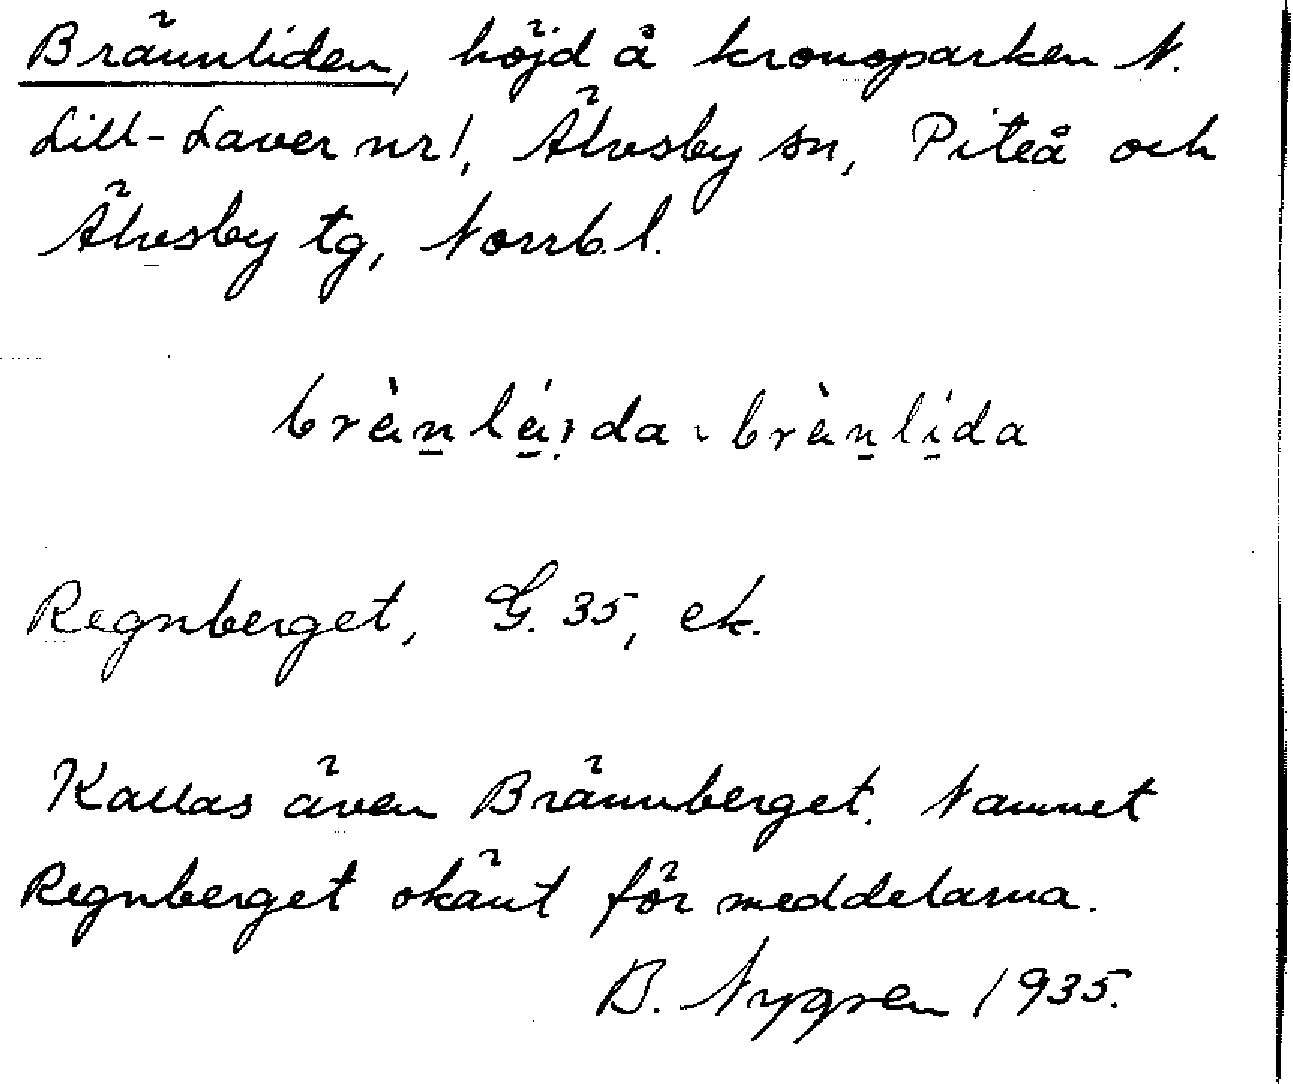 Brännliden, höjd å kronoparken N.
Lill-Laver nr 1, Älvsby sn, Piteå och
Älvsby tg, Norrb. l.
brànlá̱i̯da · brànlída
Regnberget, G. 35, ek.
Kallas även Brännberget. Namnet
Regnberget okänt för meddelarna.
B. Nygren 1935.